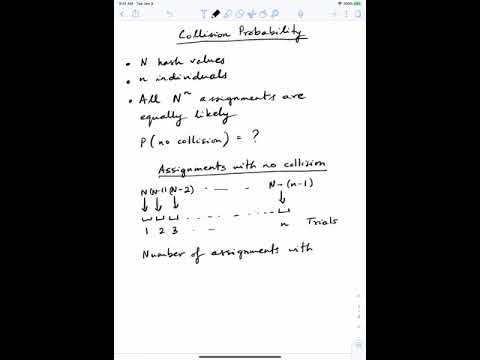 Collision Probability
• N hash values
• n individuals
• All Nⁿ assignments are
equally likely
P(no collision) = ?
Assignments with no collision
N (N-1) (N-2) - — - N-(n-1)
1 2 3 - - n Trials
Number of assignments with